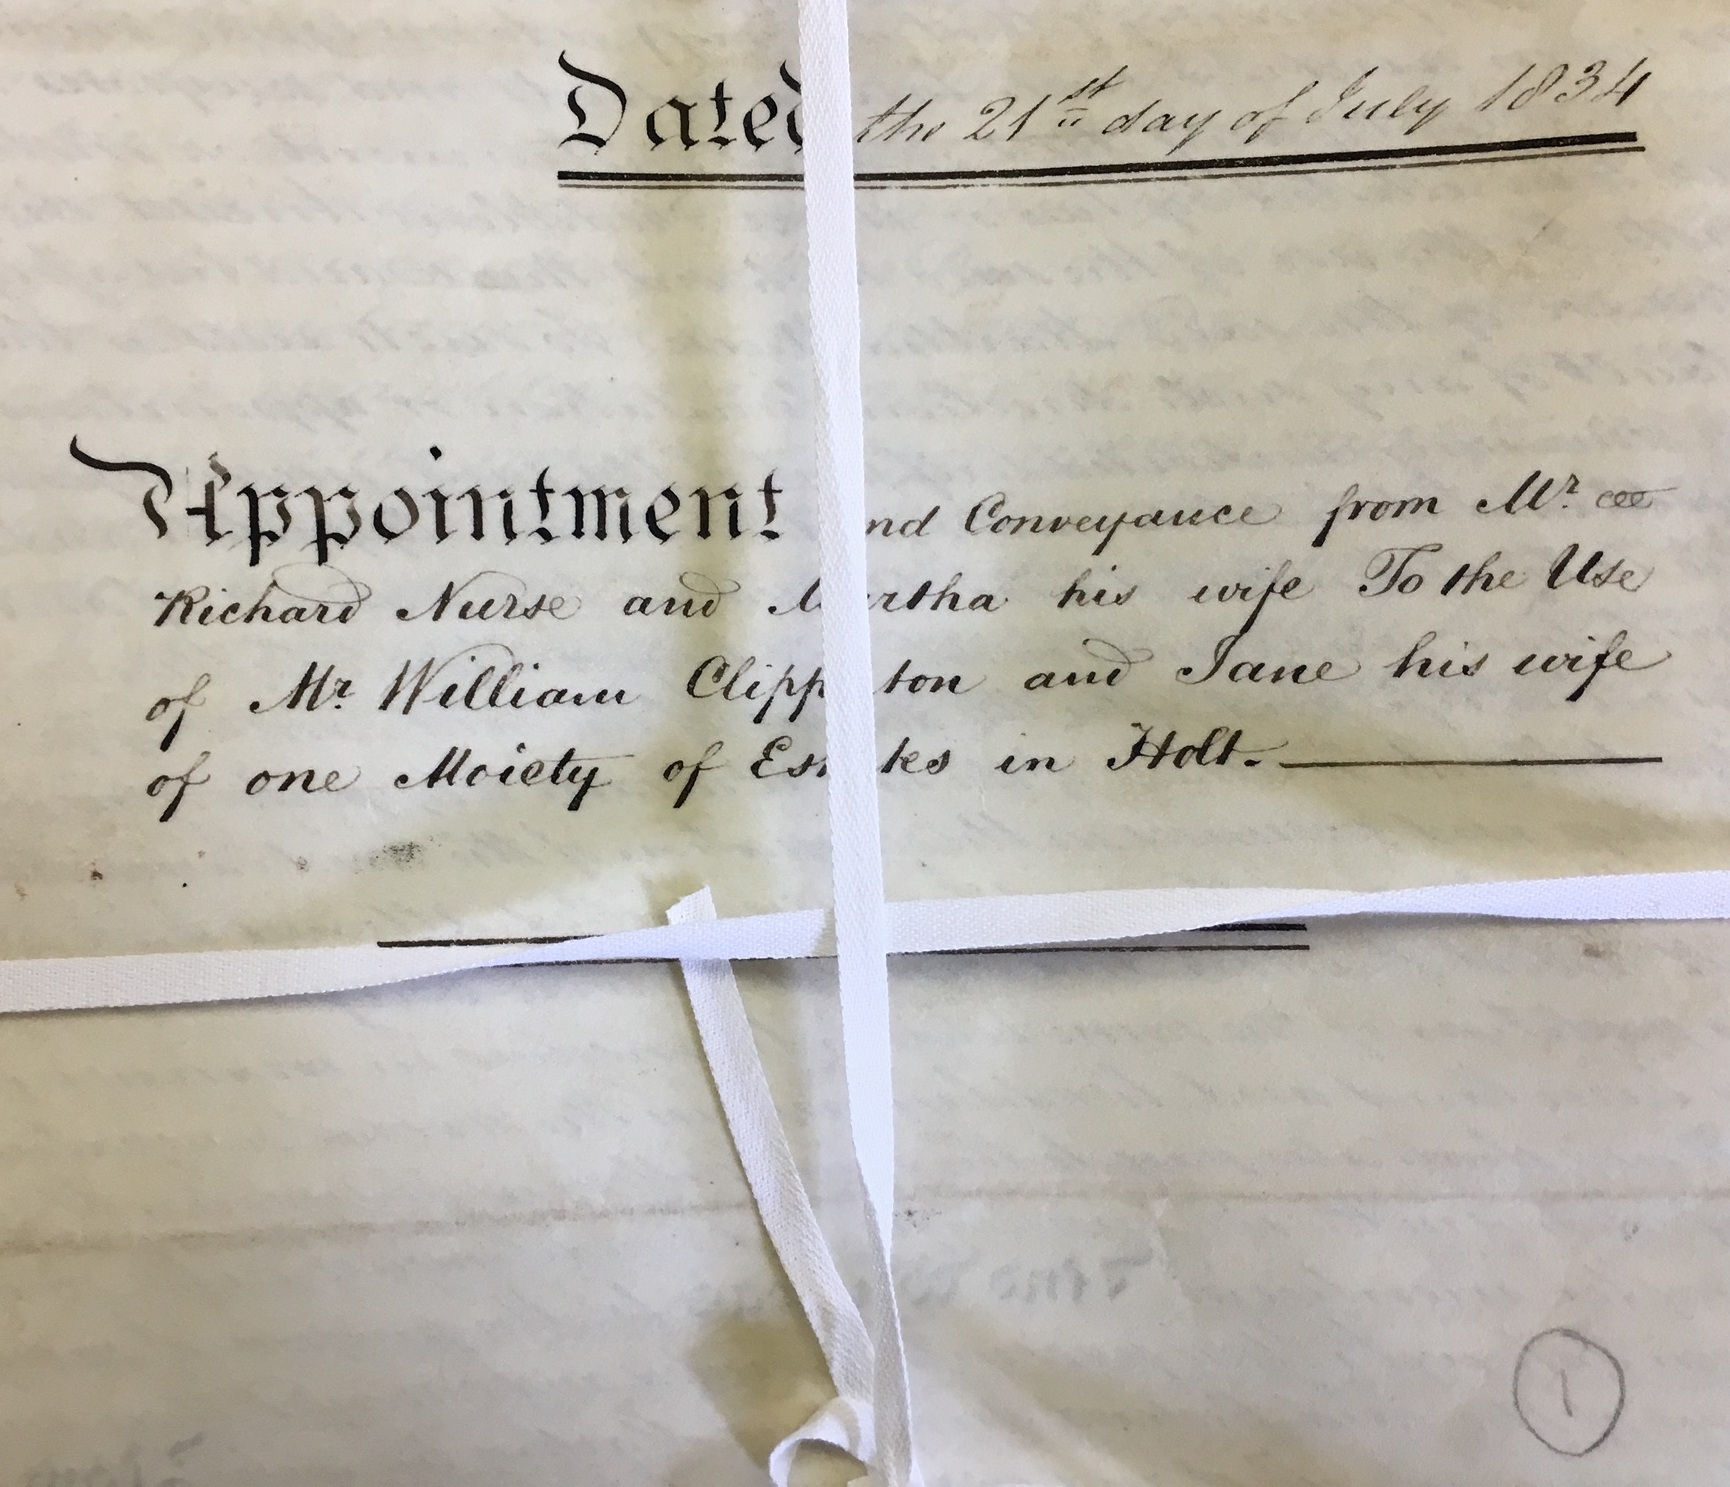 Dated the 21st day of July 1834
Appointment and Conveyance from Mr.
Richard Nurse and Martha his wife To the Use
of Mr William Clipperton and Jane his wife
of one Moiety of Estates in Holt.
1